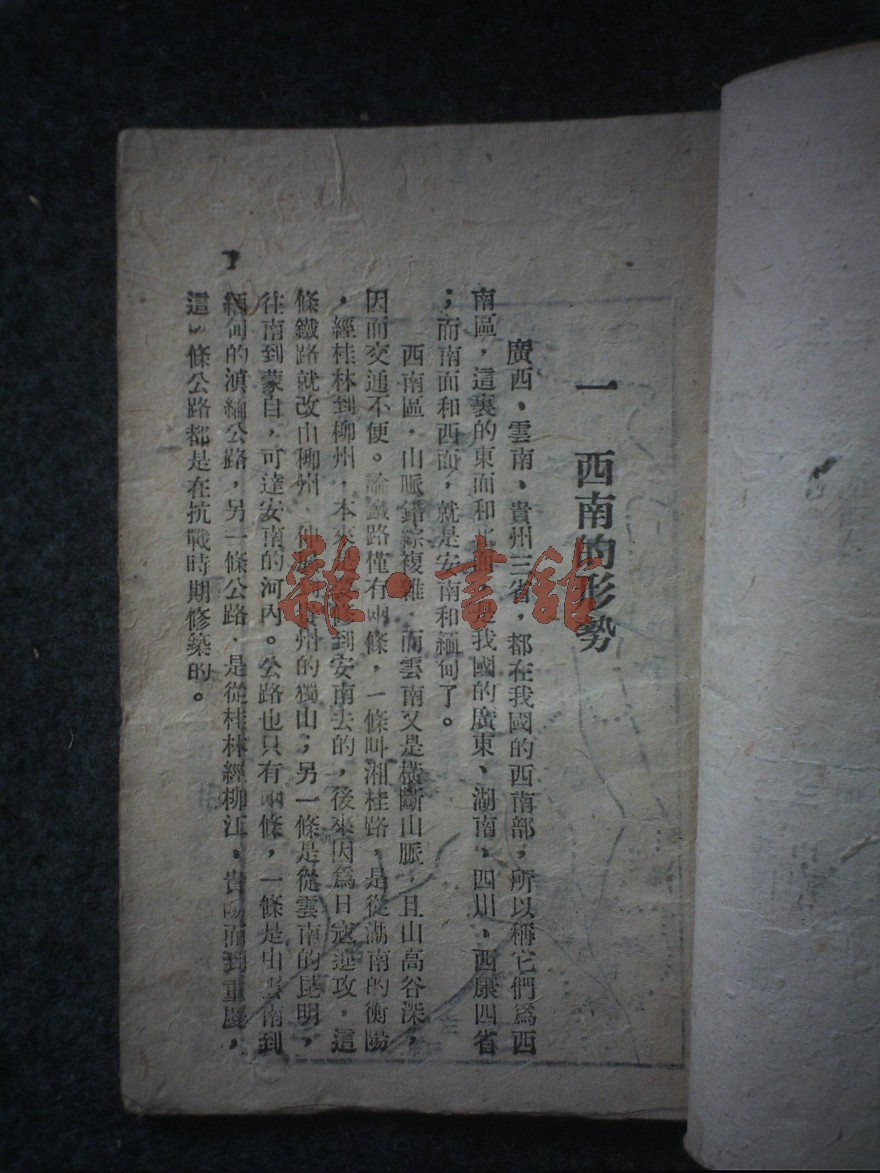 一 西南的形勢
廣西、雲南、貴州三省，都在我國的西南部，所以稱它們爲西
南區，這裏的東面和北面，是我國的廣東、湖南、四川、西康四省
；而南面和西面，就是安南和緬甸了。
西南區，山脈錯綜複雜，而雲南又是橫斷山脈，且山高谷深，
因而交通不便。論鐵路僅有兩條，一條叫湘桂路，是從湖南的衡陽
，經桂林到柳州，本來是要修到安南去的，後來因爲日寇進攻，這
條鐵路就改由柳州，伸展到貴州的獨山；另一條是從雲南的昆明，
往南到蒙自，可達安南的河內。公路也只有兩條，一條是由雲南到
緬甸的滇緬公路，另一條公路，是從桂林經柳江、貴陽而到重慶，
這 條公路都是在抗戰時期修築的。
雜·書館